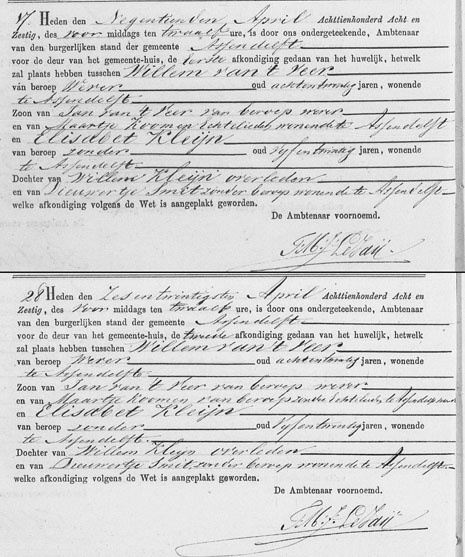 17 Heden den Negentienden April Achttienhonderd Acht en
Zestig, des voor middags ten twaalf ure, is door ons ondergeteekende, Ambtenaar
van den burgerlijken stand der gemeente Assendelft
voor de deur van het gemeente-huis, de eerste afkondiging gedaan van het huwelijk, hetwelk
zal plaats hebben tusschen Willem van 't Veer
van beroep Wever oud achtentwintig jaren, wonende
te Assendelft
Zoon van Jan van 't Veer van beroep wever
en van Maartje Koomen Echtelieden wonende te Assendelft
en Elisabet Kleijn
van beroep zonder oud Vyfentwintig jaren, wonende
te Assendelft
Dochter van Willem Kleijn overleden
en van Dieuwertje Smit zonder beroep wonende te Assendelft
welke afkondiging volgens de Wet is aangeplakt geworden.
De Ambtenaar voornoemd.
28 Heden den Zesentwintigsten April Achttienhonderd Acht en
Zestig, des Voor middags ten twaalf ure, is door ons ondergeteekende, Ambtenaar
van den burgerlijken stand der gemeente Assendelft
voor de deur van het gemeente-huis, de tweede afkondiging gedaan van het huwelijk, hetwelk
zal plaats hebben tusschen Willem van 't Veer
van beroep Wever oud achtentwintig jaren, wonende
te Assendelft
Zoon van Jan van 't Veer van beroep wever
en van Maartje Koomen van beroep zonder Echtelieden te Assendelft
en Elisabet Kleijn
van beroep zonder oud Vyfentwintig jaren, wonende
te Assendelft
Dochter van Willem Kleyn overleden
en van Dieuwertje Smit zonder beroep wonende te Assendelft
welke afkondiging volgens de Wet is aangeplakt geworden.
De Ambtenaar voornoemd.